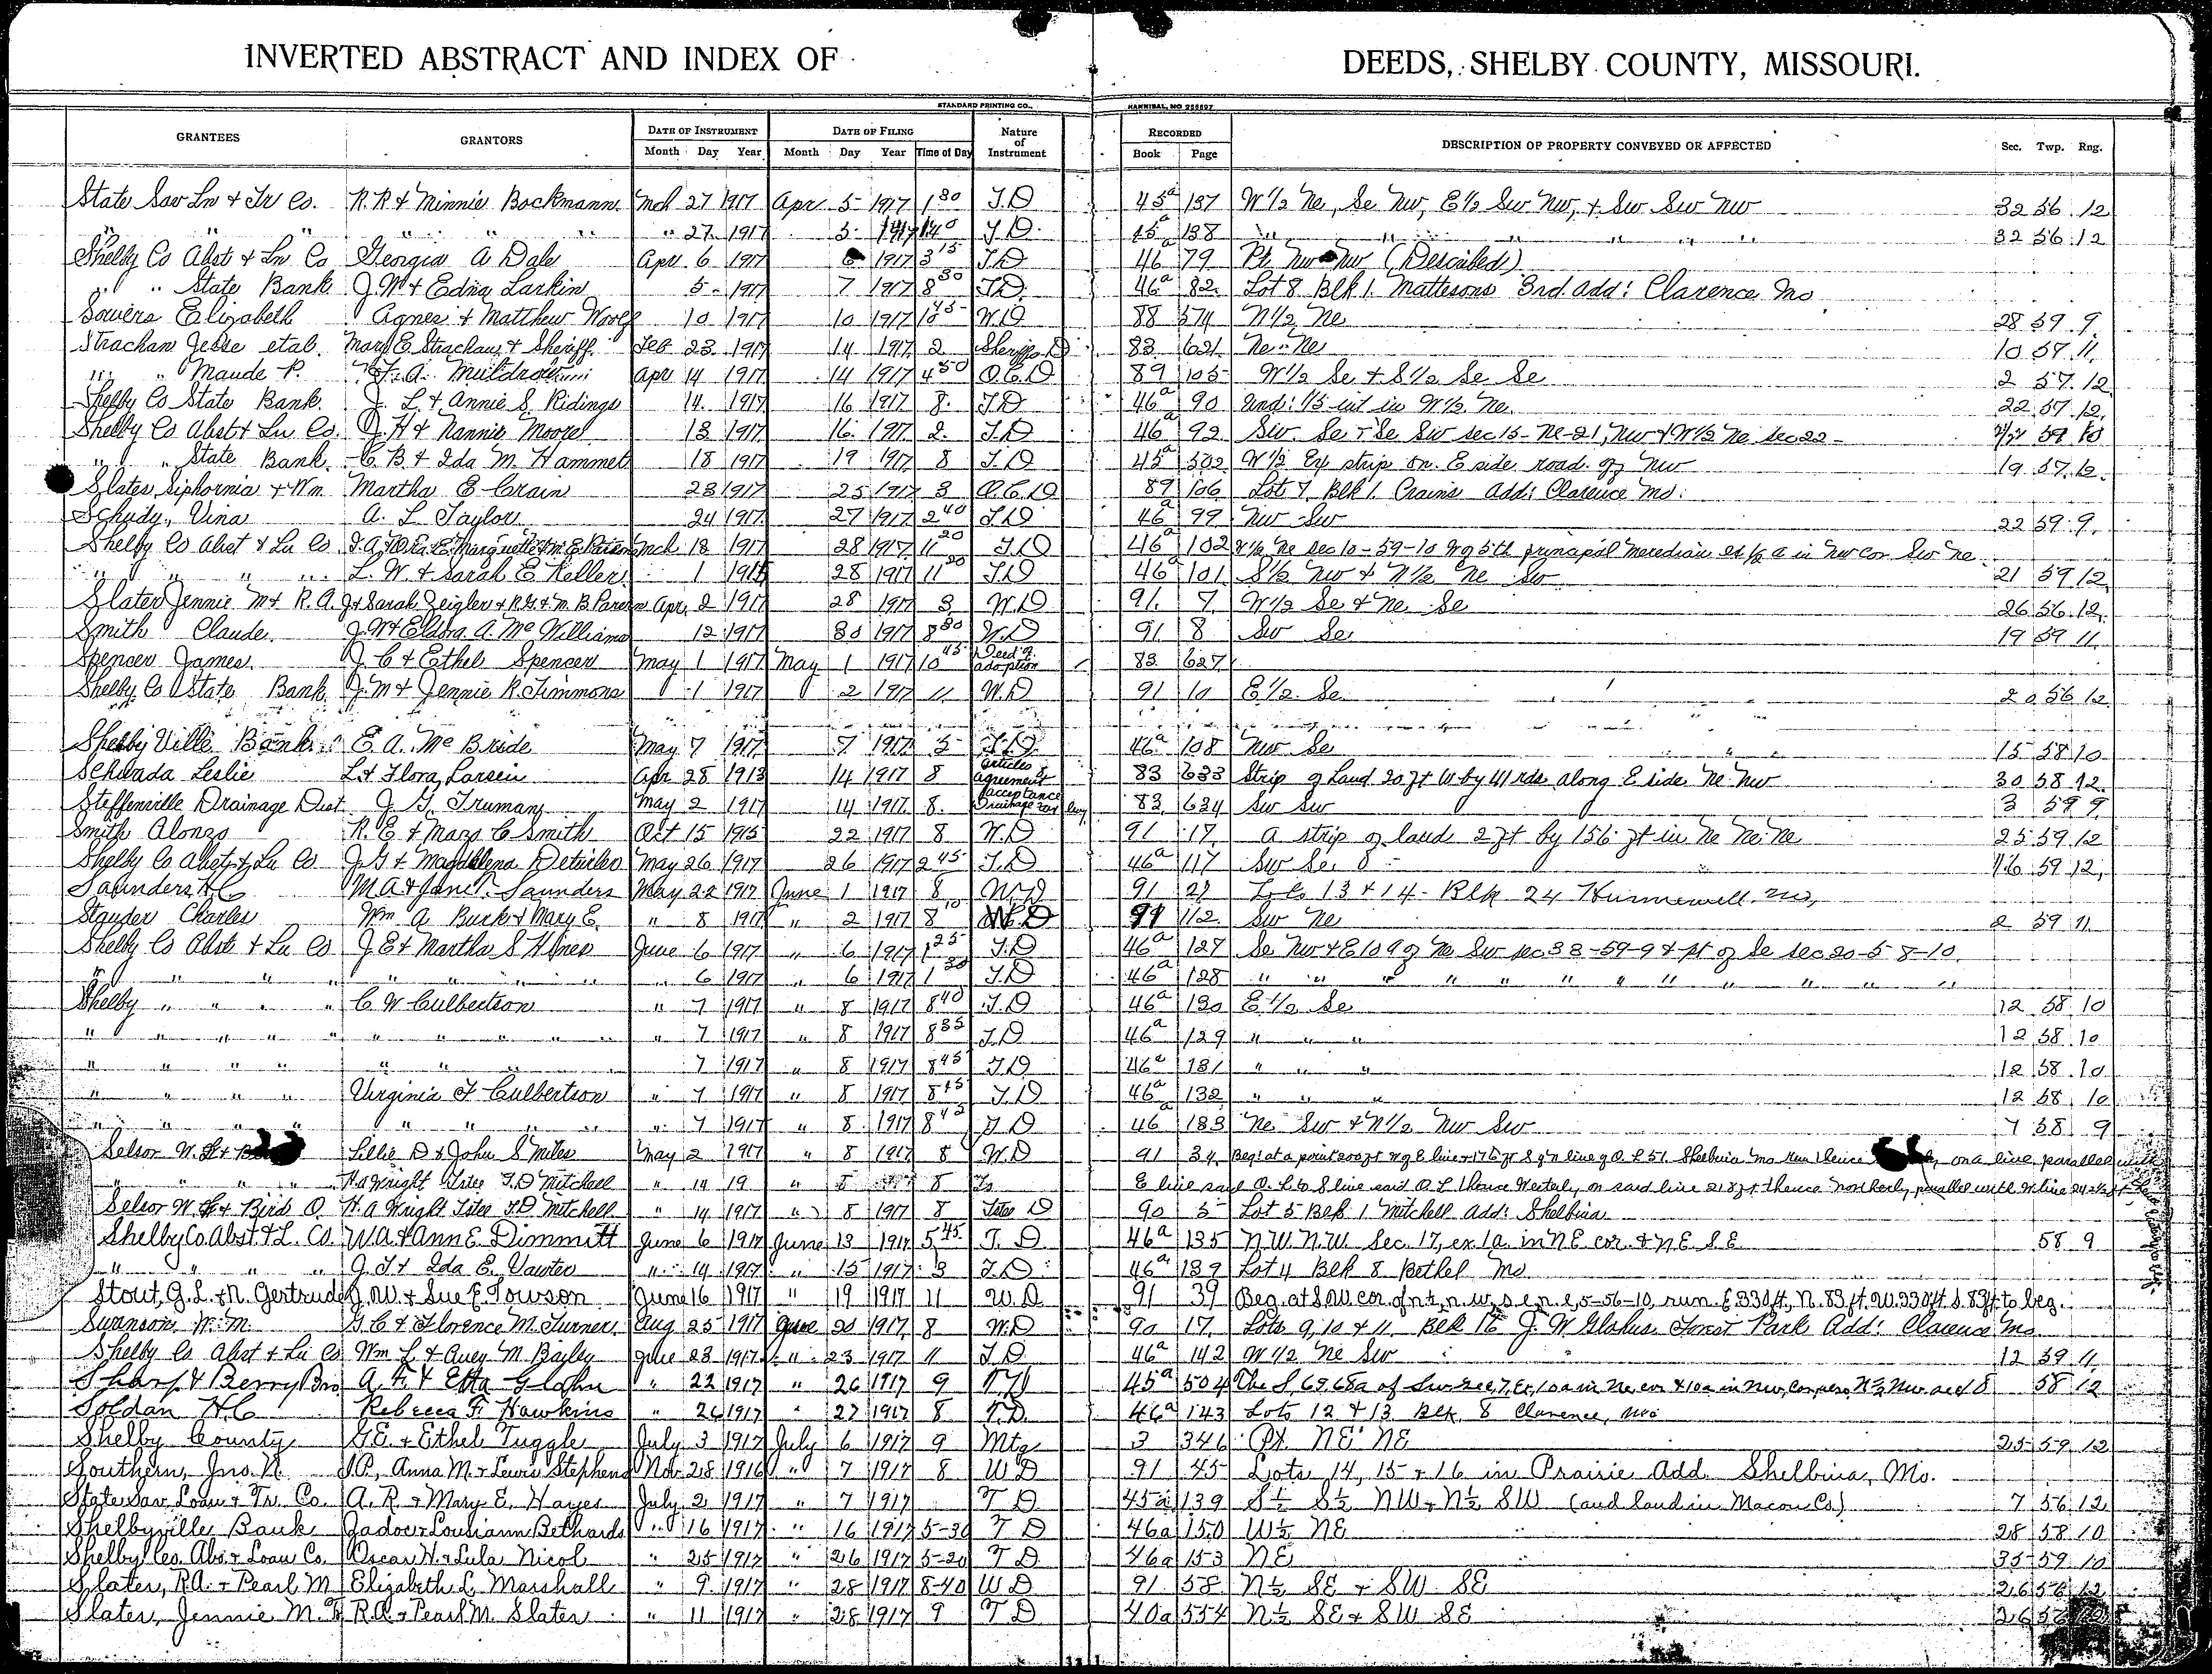 INVERTED ABSTRACT AND INDEX OF DEEDS, SHELBY COUNTY, MISSOURI.
STANDARD PRINTING CO., HANNIBAL, MO 256597
GRANTEES GRANTORS DATE OF INSTRUMENT DATE OF FILING Nature of Instrument RECORDED DESCRIPTION OF PROPERTY CONVEYED OR AFFECTED Sec. Twp. Rng.
Month Day Year Month Day Year Time of Day Book Page
State Sav Ln & Tr Co. R. R & Minnie Bockmann Mch 27 1917 Apr 5 1917 1 30 T.D 45a 137 W 1/2 Ne, Se Nw, E 1/2 Sw Nw, & Sw Sw Nw 32 56 12
" " " " " " 27 1917 5 1917 1 40 T.D. 45a 138 " " " " " 32 56 12
Shelby Co Abst & Ln Co Georgia A Dale Apr 6 1917 6 1917 3 15 T.D 46a 79 Pt Nw Nw (Described)
" " State Bank J. M & Edna Larkin 5 1917 7 1917 8 30 T.D. 46a 82 Lot 8 Blk 1. Mattesons 3rd. Add: Clarence Mo
Sowers Elizabeth Agnes & Matthew Woolf 10 1917 10 1917 10 45 W.D 88 574 N 1/2 Ne 28 59 9
Strachan Jesse etal. Mary E. Strachan & Sheriff Feb 23 1917 14 1917 2 Sheriffs D 83 621 Ne Ne 10 57 11
" " Maude P. F. A. Muldrow Apr 14 1917 14 1917 4 50 Q.C.D 89 105 W 1/2 Se & S 1/2 Se Se 2 57 12
Shelby Co State Bank. J. L. & Annie S. Ridings 14 1917 16 1917 8 T.D 46a 90 Und: 1/5 int in W 1/2 Ne 22 57 12
Shelby Co Abst & Ln Co. J. H & Nannie Moore 13 1917 16 1917 2 T.D 46a 92 Sw Se & Se Sw sec 15 - Ne - 21, Nw & W 1/2 Ne sec 22 - 59 10
" " State Bank C. B. & Ida M. Hammet 18 1917 19 1917 8 T.D 45a 502 W 1/2 Ex strip on E side road of Nw 19 57 12
Slates Siphornia & Wm Martha E Crain 23 1917 25 1917 3 Q.C.D 89 106 Lot 7 Blk 1. Crains Add: Clarence Mo.
Schudy, Vina A. L Taylor 24 1917 27 1917 2 40 T.D 46a 99 Nw Sw 22 59 9
Shelby Co Abst & Ln Co Mch 18 1917 28 1917 11 20 T.D 46a 102 Ne sec 10-59-10 W of 5th principal Meredian ex 1/2 a in Nw cor Sw Ne
" " " " L. W. & Sarah E Keller 1 28 1917 11 20 T.D 46a 101 S 1/2 Nw & N 1/2 Ne Sw 21 59 12
Slater Jennie M & R. A. J & Sarah Zeigler & R. G & M. B. Parsons Apr 2 1917 28 1917 3 W.D 91 7 W 1/2 Se & Ne Se 26 56 12
Smith Claude J. W & Eldora A. Mc Williams 12 1917 30 1917 8 30 W.D 91 8 Sw Se 19 59 11
Spencer James J. C & Ethel Spencer May 1 1917 May 1 1917 10 45 Deed of adoption 83 627
Shelby Co State Bank J. M & Jennie R. Timmons 1 1917 2 1917 11 W.D 91 10 E 1/2 Se 20 56 12
Shelby Ville Bank E. A. Mc Bride May 7 1917 7 1917 5 T.D 46a 108 Nw Se 15 58 10
Schwada Leslie L & Flora Larsen Apr 28 1913 14 1917 8 articles of agreement 83 633 Strip of Land 20 ft W by 41 rds along E side Ne Nw 30 58 12
Steffenville Drainage Dist J. G. Truman May 2 1917 14 1917 8 acceptance Drainage tax levy 83 634 Sw Sw 3 59 9
Smith Alonzo R. E & Mary C Smith Oct 15 1915 22 1917 8 W.D 91 17 A strip of land 2 ft by 156 ft in Ne Ne Ne 25 59 12
Shelby Co Abst & Ln Co J. G & Magdalena Detwiler May 26 1917 26 1917 2 45 T.D 46a 117 Sw Se 16 59 12
Saunders H C M. A & Jane P. Saunders May 22 1917 June 1 1917 8 W.D 91 27 Lots 13 & 14 - Blk 24 Hunnewell Mo,
Stauder Charles Wm. A Burk & Mary E. " 8 1917 " 2 1917 8 10 W.D 91 112 Sw Ne 2 59 11
Shelby Co Abst & Ln Co J. E & Martha S Hines June 6 1917 " 6 1917 1 25 T.D 46a 127 Se Nw & E 10 9 of Ne Sw sec 33-59-9 & pt of Se sec 20-58-10
" " " " " " 6 1917 " 6 1917 1 30 T.D 46a 128 " " " " " "
Shelby " " " " C. W Culbertson " 7 1917 " 8 1917 8 40 T.D 46a 130 E 1/2 Se 12 58 10
" " " " " " " 7 1917 " 8 1917 8 35 T.D 46a 129 " " " 12 58 10
" " " " " " 7 1917 " 8 1917 8 45 T.D 46a 131 " " " 12 58 10
" " " " Virginia F Culbertson " 7 1917 " 8 1917 8 45 T.D 46a 132 " " " 12 58 10
" " " " " " " 7 1917 " 8 1917 8 42 T.D 46a 133 Ne Sw & N 1/2 Nw Sw 7 58 9
Selsor W. H & Lillie D & John S Miles May 2 1917 " 8 1917 8 W.D 91 34 Beg: at a point 200 ft W of E line & 176 ft S of N line of O. L 51 Shelbina Mo Run thence on a line parallel with
" " " " H. A Wright Litee T.D Mitchell " 14 19 " 8 8 E line said O. L to S line said O L thence Westerly on said line 218 ft thence Northerly parallel with W line
Selsor W. H & Bird O. H. A Wright Litee T.D Mitchell " 14 1917 " 8 1917 8 D 90 5 Lot 5 Blk 1 Mitchell Add: Shelbina
Shelby Co. Abst. & L. Co. W. A. & Ann E. Dimmitt June 6 1917 June 13 1917 5 45 T. D. 46a 135 N.W. N.W. Sec. 17, ex. 1a. in NE cor. & N.E. S.E. 58 9
" " " J. T & Ida E. Vawter " 14 1917 " 15 1917 3 T.D. 46a 139 Lot 4 Blk 8 Bethel Mo
Stout, G. L. & N. Gertrude J. W. & Sue E. Towson June 16 1917 " 19 1917 11 W.D. 91 39 Beg. at S.W. cor. of n ½, n.w, s.e, n.e, 5-56-10, run E. 330 ft, N. 83 ft. W. 330 ft. S. 83 ft to beg.
Swanson W. M. G. C & Florence M. Turner Aug 25 1917 June 20 1917 8 W.D 90 17 Lots 9, 10 & 11 Blk 16 J. W Glahns Forest Park Add: Clarence Mo.
Shelby Co Abst & Ln Co Wm L & Avey M. Bayley June 23 1917 " 23 1917 11 T.D 46a 142 W 1/2 Ne Sw 12 59 11
Sharp & Berry Bro A. F. & Etta Glahn " 22 1917 " 26 1917 9 T.D 45a 504 The S 65 a of Sw sec 7, Ex 10a in Ne cor & 10a in Nw 58 12
Soldan H. C Rebecca F. Hawkins " 26 1917 " 27 1917 8 T.D. 46a 143 Lots 12 & 13 Blk 8 Clarence, Mo
Shelby County G. E. & Ethel Tuggle July 3 1917 July 6 1917 9 Mtg 3 346 Pt. NE NE 25 59 12
Southern, Jno. N. J.P., Anna M. & Lewis Stephens Nov 28 1916 " 7 1917 8 W D 91 45 Lots 14, 15 & 16 in Prairie Add. Shelbina, Mo.
State Sav. Loan & Tr. Co. A. R. & Mary E. Hayes July 2 1917 " 7 1917 T D 45a 139 S½ S½ NW & N½ SW (and land in Macon Co) 7 56 12
Shelbyville Bank Jadoc & Lousiann Bethards " 16 1917 " 16 1917 5-30 T D 46a 150 W½ NE 28 58 10
Shelby Co. Abs. & Loan Co. Oscar H. & Lula Nicol " 25 1917 " 26 1917 5-20 T D 46a 153 NE 35 59 10
Slater, R.A. & Pearl M Elizabeth L. Marshall " 9 1917 " 28 1917 8-40 W D 91 58 N½ SE & SW SE 26 56 12
Slater, Jennie M. R.A. & Pearl M. Slater " 11 1917 " 28 1917 9 T D 40a 554 N½ SE & SW SE 26 56